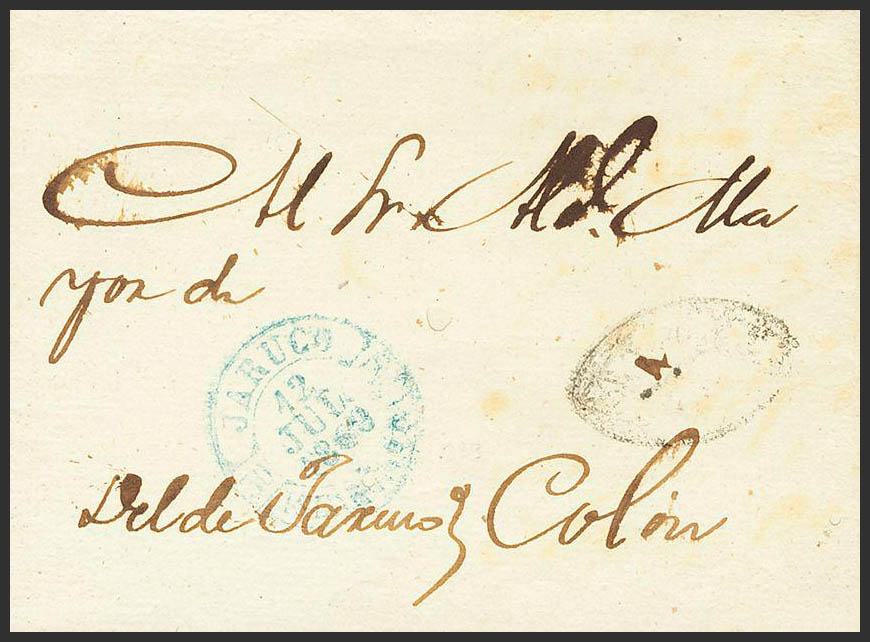 Al Sr. Ald. Ma
yor de
JARUCO
12
JUL
1869
A.
Del de Jaruco Colón